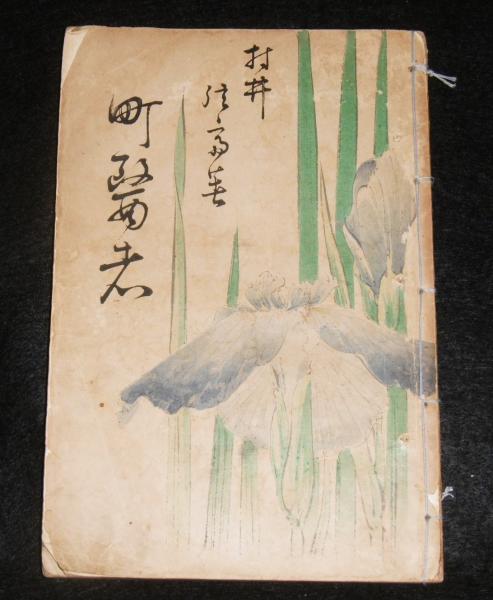 村井
弦齋著
町醫者